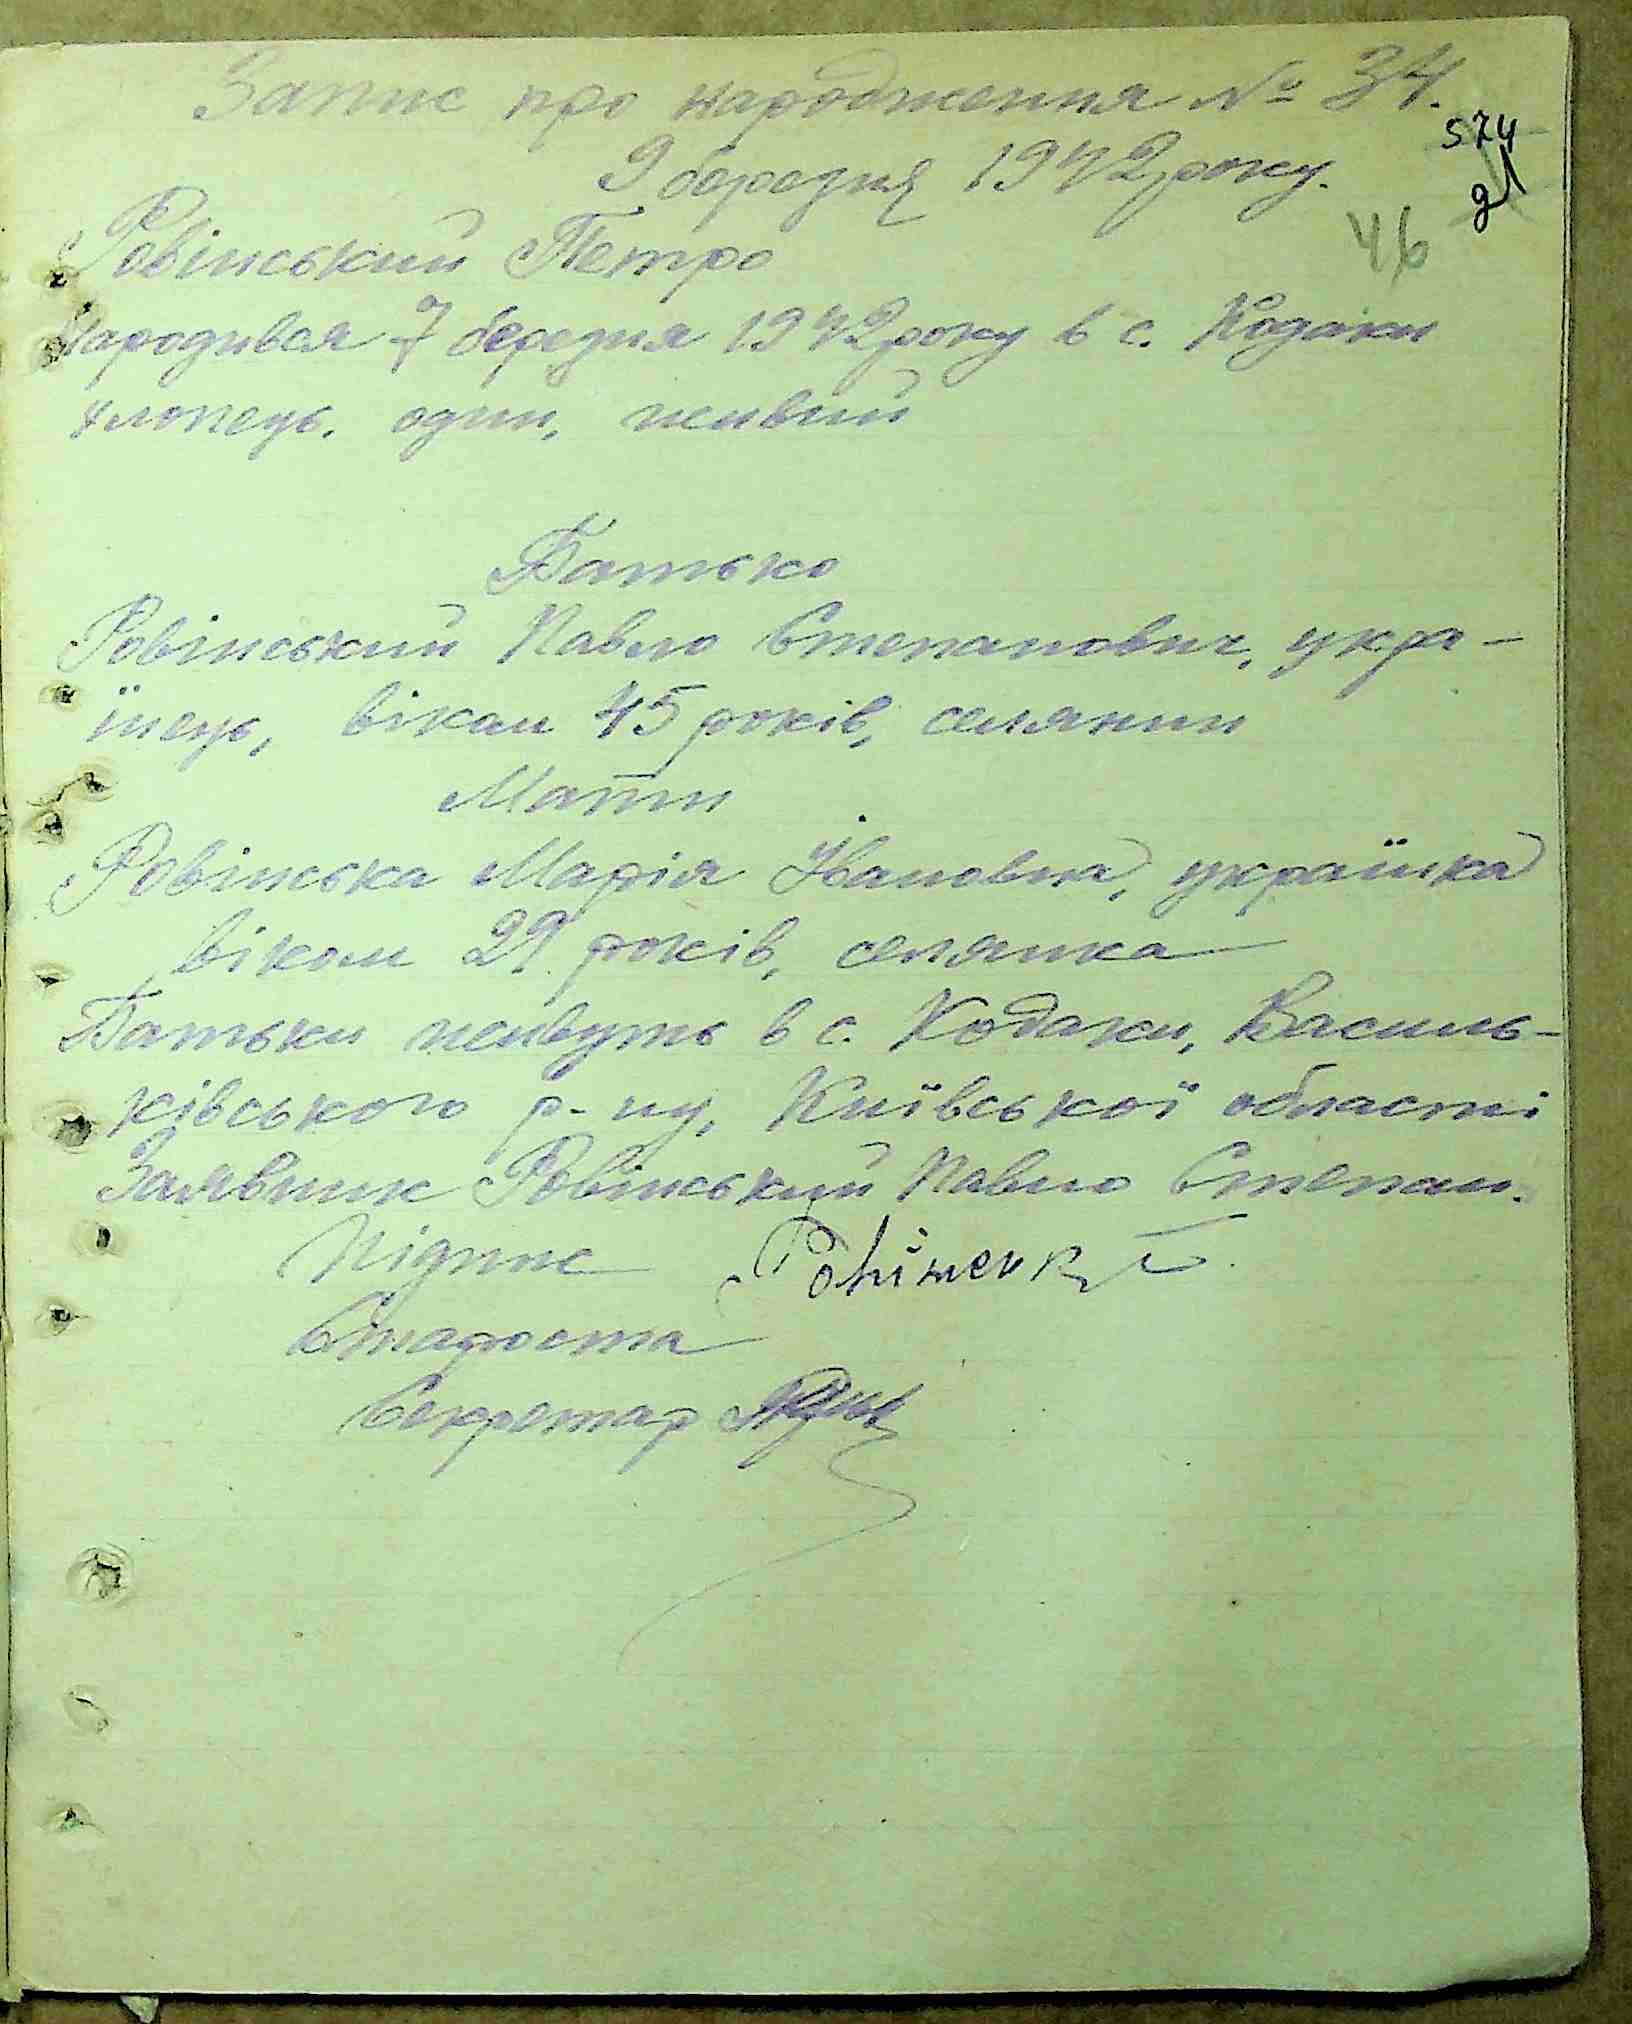 Запис про народження № 34.
574
9 березня 1942 року.
46
Ровінський Петро
Народивсяя 7 березня 1942 року в с. Кодаки
хлопець. один, живий
Батько
Ровінський Павло Степанович, укра-
їнець, віком 45 років, селянин
Мати
Ровінська Марія Івановна, українка
віком 29 років, селянка
Батьки живуть в с. Кодаки, Василь-
ківського р-ну, Київської області
Заявник Ровінський Павло Степан.
Підпис
Староста
Секретар